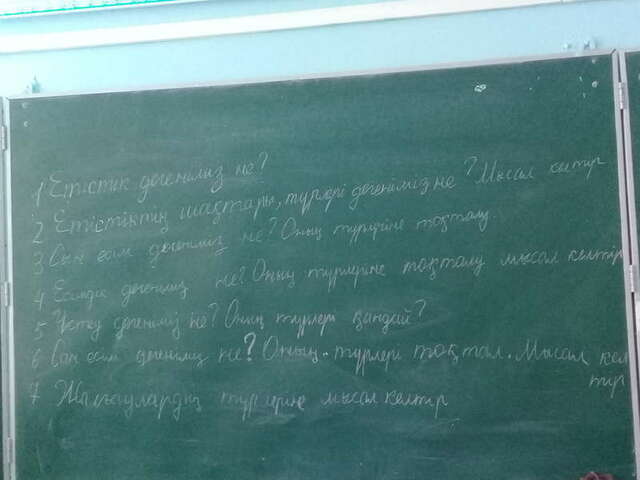 1 Етістік дегеніміз не?
2 Етістіктің шақтары, түрлері дегеніміз не? Мысал келтір
3 Сын есім дегеніміз не? Оның түріне тоқталу.
4 Есімдік дегеніміз не? Оның түрлеріне тоқталу мысал келтір
5 Үстеу дегеніміз не? Оның түрлері қандай?
6 Сан есім дегеніміз не? Оның түрлері тоқтал. Мысал кел
тір
7 Жалғаулардың түрлеріне мысал келтір